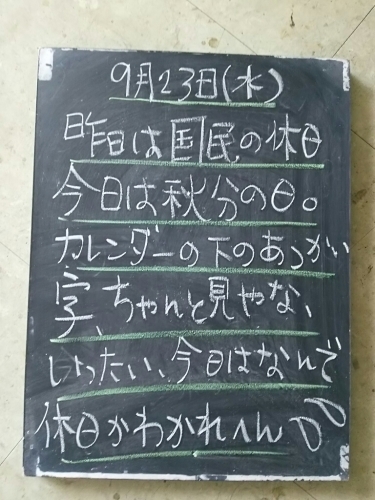 9月23日(水)
昨日は国民の休日
今日は秋分の日。
カレンダーの下のあるかい
字、ちゃんと見やな、
いったい、今日はなんで
休日かわかれへん